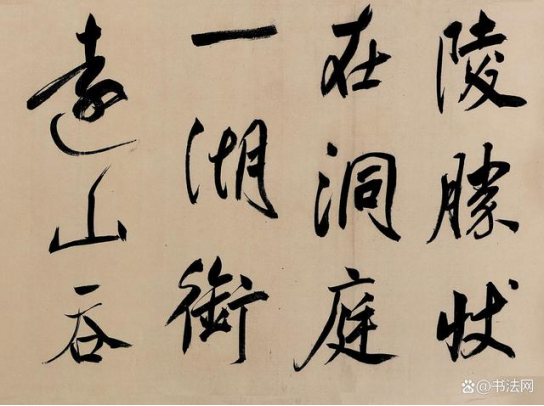 陵勝狀
在洞庭
一湖銜
遠山吞
@书法网